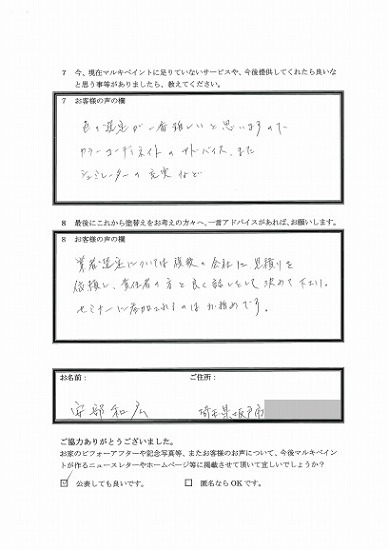 7 今、現在マルキペイントに足りていないサービスや、今後提供してくれたら良いな
と思う事等がありましたら、教えてください。
7 お客様の声の欄
色の選定が一番難しいと思いますので
カラーコーディネイトのアドバイス、また
シュミレーターの充実など
8 最後にこれから塗替えをお考えの方々へ、一言アドバイスがあれば、お願いします。
8 お客様の声の欄
業者選定については複数の会社に見積りを
依頼し、責任者の方と良く話しをして決めて下さい。
セミナーに参加されるのはお勧めです。
お名前: ご住所:
安部和広 埼玉県坂戸市
ご協力ありがとうございました。
お家のビフォーアフターや記念写真等、またお客様の声について、今後マルキペイン
トが作るニュースレターやホームページ等に掲載させて頂いて宜しいでしょうか?
☑ 公表しても良いです。 □ 匿名なら OK です。